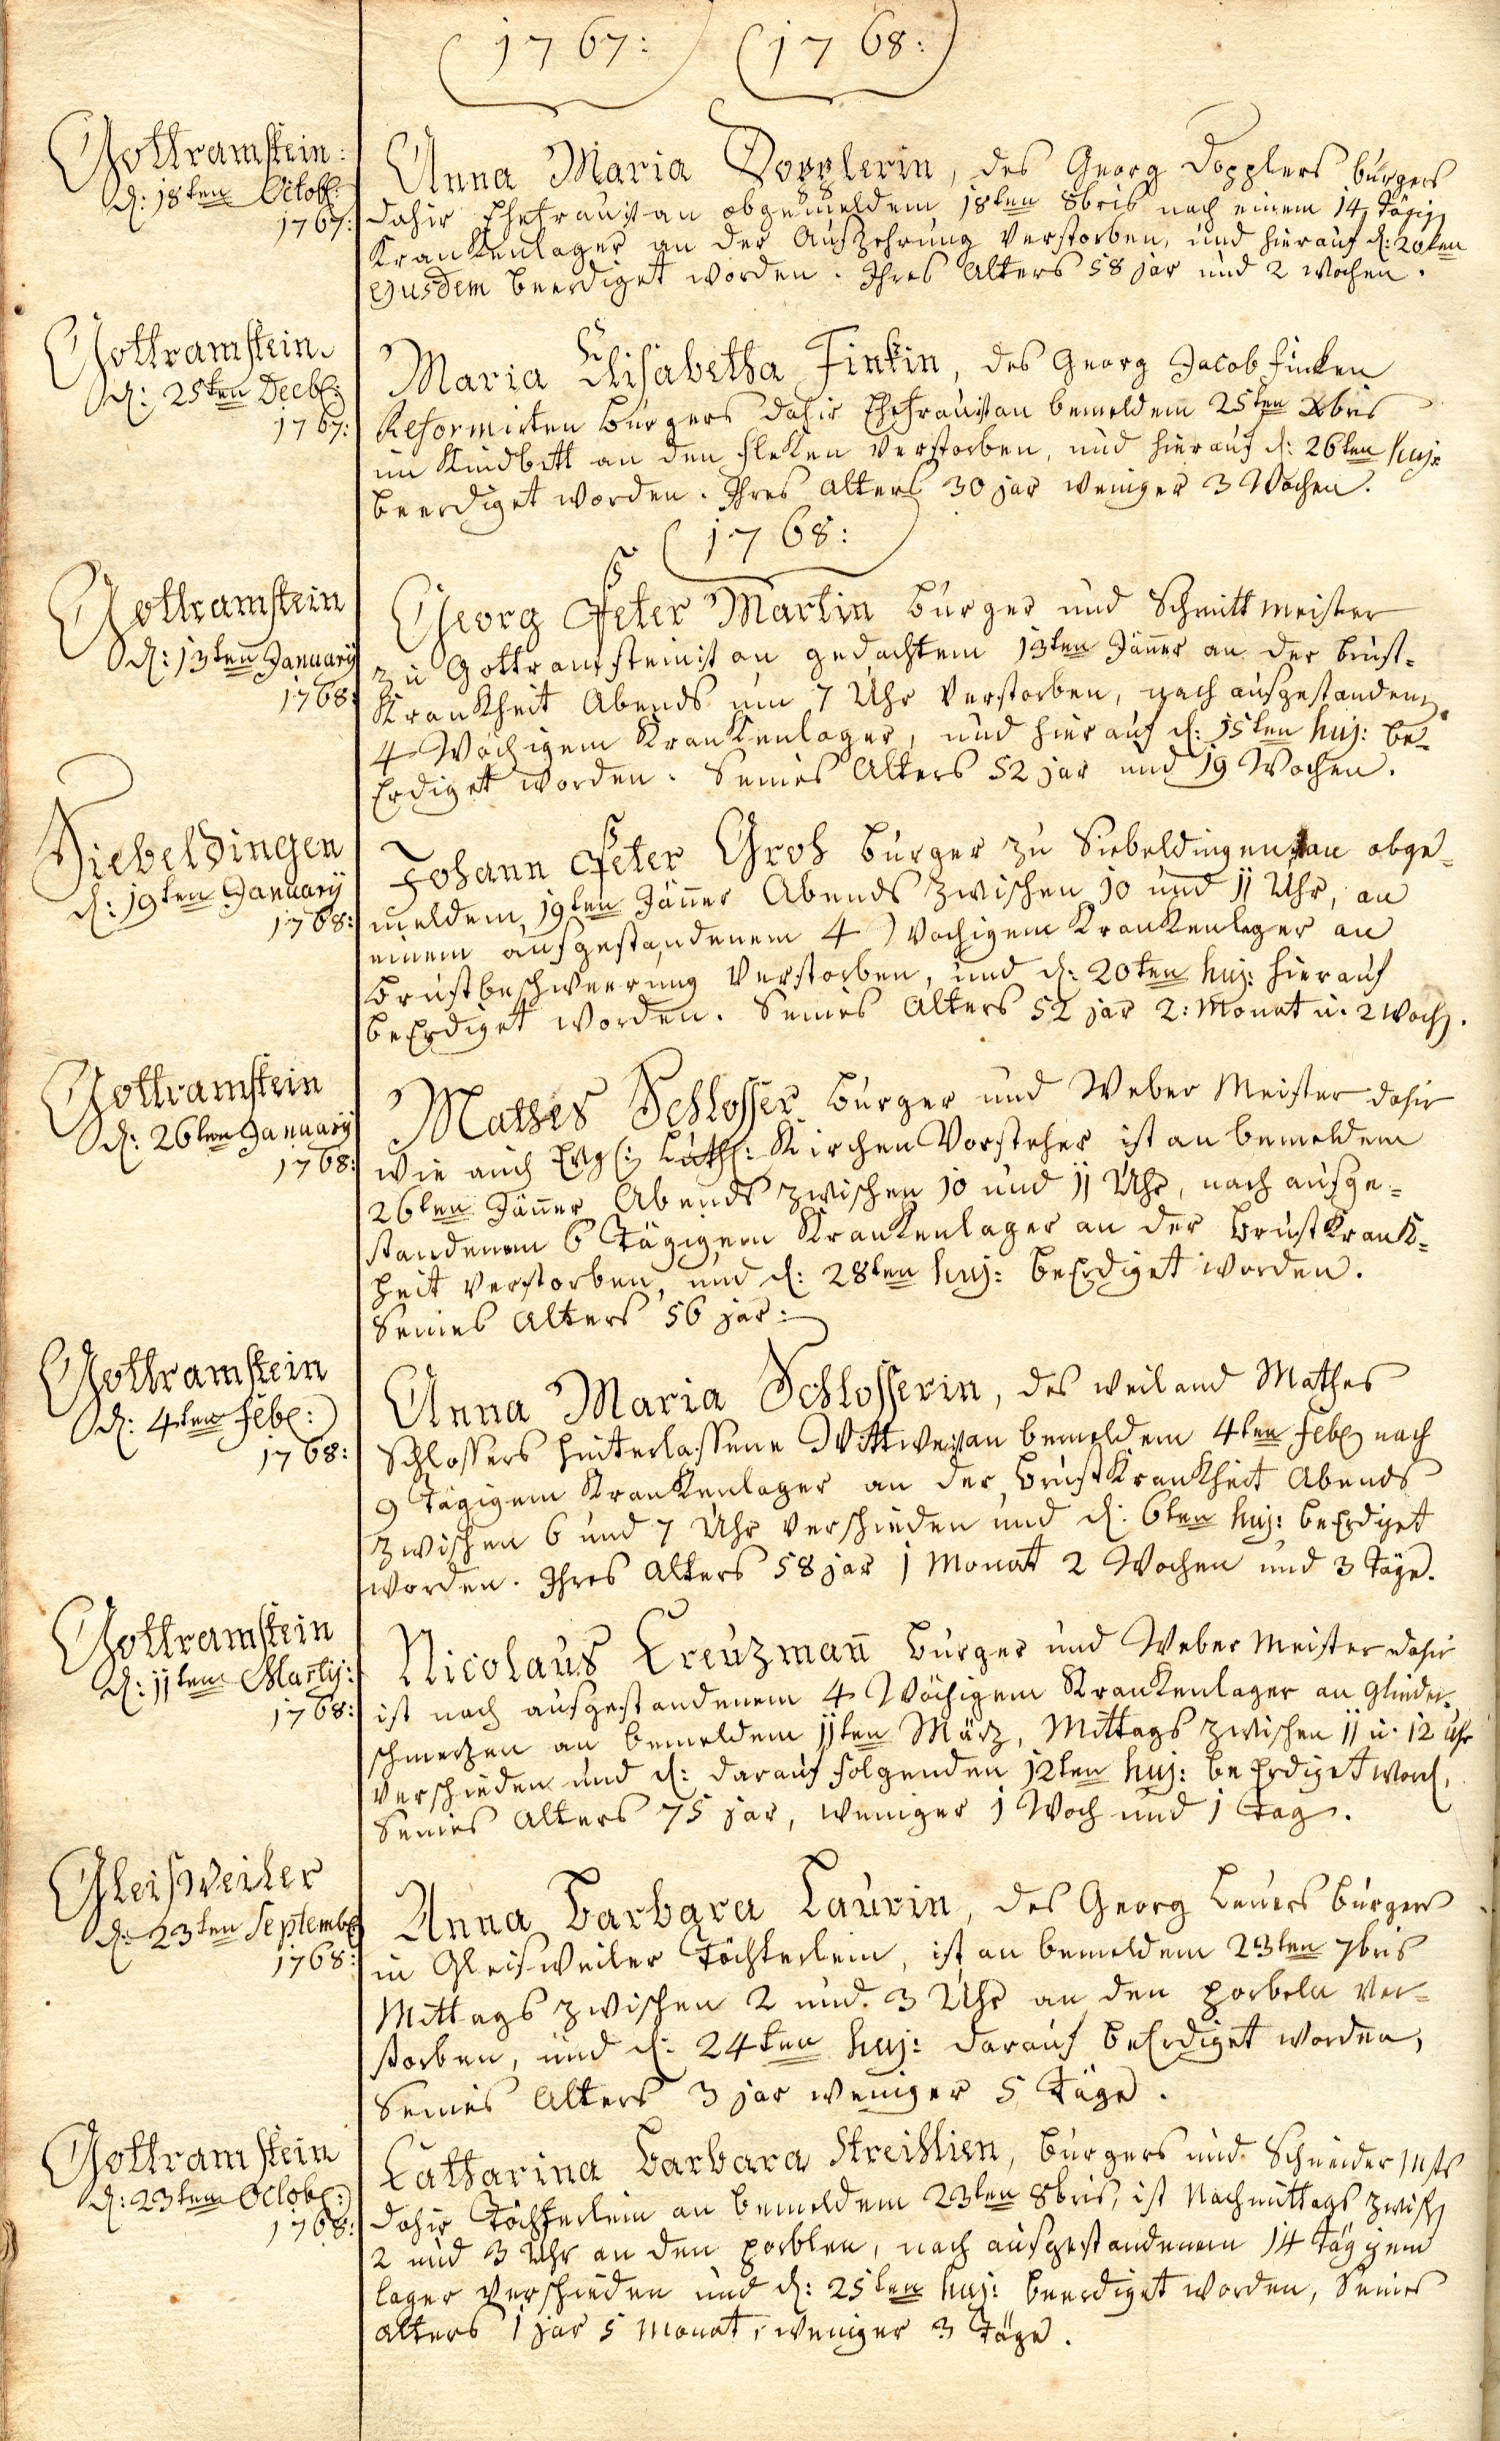 1767: 1768:
Gottramstein:
d: 18ten Octob:
1767:
Anna Maria Dopplerin, des Georg Dopplers burgers
dahir Ehefrau ist an obgemeldem 18ten 8bris nach einem 14 Tägig
Krankenlager an der Auszehrung Verstorben, und hierauf d: 20ten
ejusdem beerdiget worden. Ihres Alters 58 jar und 2 wochen.
Gottramstein.
d: 25ten Decb:
1767:
Maria Elisabetha Finkin, des Georg Jacob Finken
Reformirten Burgers dahir Ehefrau ist an bemeldem 25ten Xbris
im Kindbett an den fleken Verstorben, und hierauf d: 26ten huj:
beerdiget worden. Ihres Alters 30 jar weniger 3 Wochen.
1768:
Gottramstein
d: 13ten January
1768:
Georg Peter Martin Burger und Schnitt meister
zu Gottramstein ist an gedachtem 13ten Jäner an der brust-
Krankheit Abends um 7 Uhr Verstorben, nach ausgestanden
4 Wöchigem Krankenlager, und hierauf d: 15ten huj: be-
Erdiget worden. Seines Alters 52 jar und 19 Wochen.
Siebeldingen
d: 19ten January
1768:
Johann Peter Groh Burger zu Siebeldingen ist an obge-
meldem 19ten Jäner Abends zwischen 10 und 11 Uhr, an
einem ausgestandenem 4 Wochigem Krankenlager an
Brustbeschweerung Verstorben, und d: 20ten huj: hierauf
beErdiget worden. Seines Alters 52 jar 2: Monat u. 2 Woch.
Gottramstein
d: 26ten January
1768:
Mathes Schlosser Burger und Weber Meister dahir
wie auch Evgl: Luth: Kirchen Vorsteher ist an bemeldem
26ten Jäner Abends zwischen 10 und 11 Uhr, nach ausge-
standenem 6 Tägigem Krankenlager an der Brust Krank-
heit Verstorben, und d: 28ten huj: beErdiget worden.
Seines Alters 56 jar:
Gottramstein
d: 4ten Feb:
1768:
Anna Maria Schlosserin, des weiland Mathes
Schlossers hinterlassene Wittwe ist an bemeldem 4ten Feb nach
9 Tägigem Krankenlager an der Brust Krankheit Abends
zwischen 6 und 7 Uhr Verschieden und d: 6ten huj: beErdiget
worden. Ihres Alters 58 jar 1 Monat 2 Wochen und 3 Täge.
Gottramstein
d: 11ten Martij:
1768:
Nicolaus Creuzman Burger und Weber Meister dahir
ist nach ausgestandenem 4 Wöchigem Krankenlager an Glieder-
schmerzen an bemeldem 11ten März, Mittags zwischen 11 u. 12 Uhr
Verschieden und d: darauf folgenden 12ten huj: beErdiget word,
Seines Alters 75 jar, weniger 1 Woch und 1 Tag.
Gleisweiler
d: 23ten Septemb
1768:
Anna Barbara Laurin, des Georg Lauers Burgers
in Gleisweiler Töchterlein, ist an bemeldem 23ten 7bris
Mittags zwischen 2 und 3 Uhr an den porbeln Ver-
storben, und d: 24ten huj: darauf beErdiget worden,
Seines Alters 3 jar weniger 5 Täge.
Gottramstein
d: 23ten Octob:
1768:
Catharina Barbara Burgers und Schneider Mstr
dahir Töchterlein an bemeldem 23ten 8bris, ist Nachmittags zwisch
2 und 3 Uhr an den porblen, nach ausgestandenem 14 Tägigem
lager Verschieden und d: 25ten huj: beerdiget worden, Seines
Alters 1 jar 5 Monat, weniger 3 Täge.